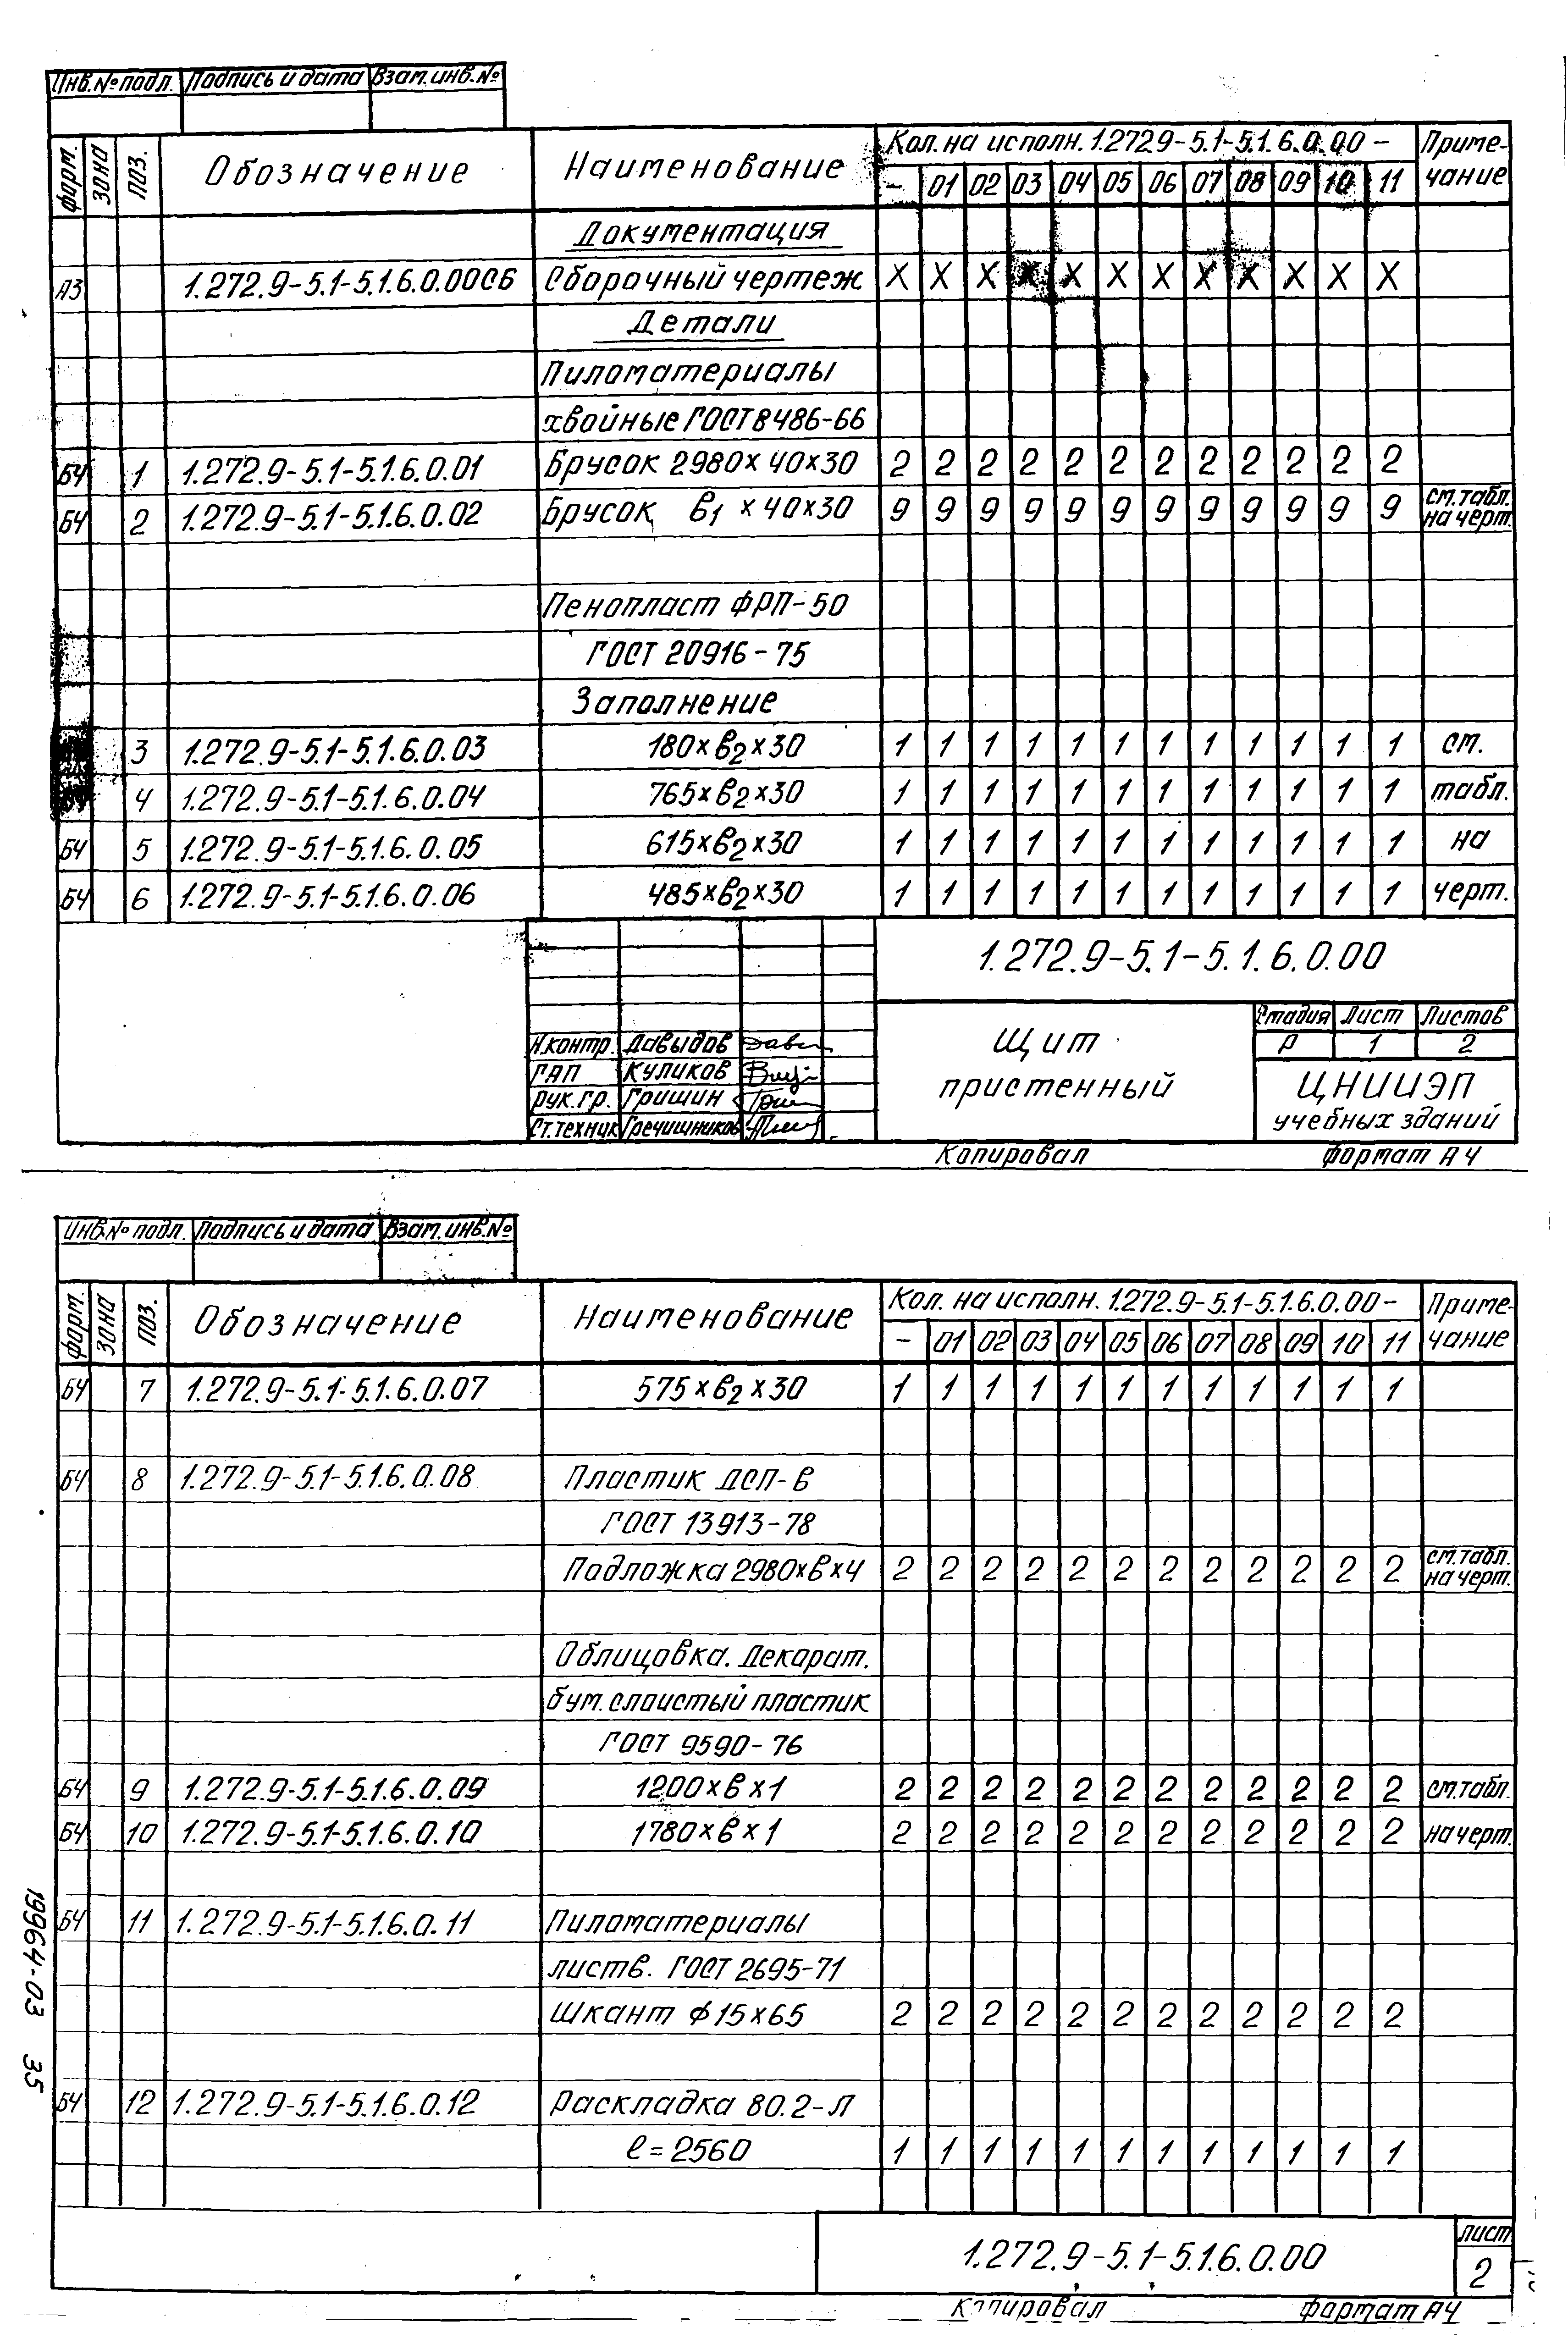 Инв.№ подл. Подпись и дата Взам.инв.№
форм. зона поз. Обозначение Наименование Кол. на исполн. 1.272.9-5.1-5.1.6.0.00 - Приме-
- 01 02 03 04 05 06 07 08 09 10 11 чание
Документация
А3 1.272.9-5.1-5.1.6.0.00СБ Сборочный чертеж X X X X X X X X X X X X
Детали
Пиломатериалы
хвойные ГОСТ 8486-66
БЧ 1 1.272.9-5.1-5.1.6.0.01 Брусок 2980×40×30 2 2 2 2 2 2 2 2 2 2 2 2
БЧ 2 1.272.9-5.1-5.1.6.0.02 Брусок в1 ×40×30 9 9 9 9 9 9 9 9 9 9 9 9 см. табл. на черт.
Пенопласт ФРП-50
ГОСТ 20916-75
Заполнение
3 1.272.9-5.1-5.1.6.0.03 180×в2×30 1 1 1 1 1 1 1 1 1 1 1 1 см.
БЧ 4 1.272.9-5.1-5.1.6.0.04 765×в2×30 1 1 1 1 1 1 1 1 1 1 1 1 табл.
БЧ 5 1.272.9-5.1-5.1.6.0.05 615×в2×30 1 1 1 1 1 1 1 1 1 1 1 1 на
БЧ 6 1.272.9-5.1-5.1.6.0.06 485×в2×30 1 1 1 1 1 1 1 1 1 1 1 1 черт.
1.272.9-5.1-5.1.6.0.00
Стадия Лист Листов
Н.контр. Давыдов Щит Р 1 2
ГАП Куликов пристенный ЦНИИЭП
рук.гр. Гришин учебных зданий
Ст.техник Гречишников
Копировал формат А4
Инв.№ подл. Подпись и дата Взам.инв.№
форм. зона поз. Обозначение Наименование Кол. на исполн. 1.272.9-5.1-5.1.6.0.00- Приме-
- 01 02 03 04 05 06 07 08 09 10 11 чание
БЧ 7 1.272.9-5.1-5.1.6.0.07 575×в2×30 1 1 1 1 1 1 1 1 1 1 1 1
БЧ 8 1.272.9-5.1-5.1.6.0.08 Пластик ДСП-в
ГОСТ 13913-78
Подложка 2980×в×4 2 2 2 2 2 2 2 2 2 2 2 2 см. табл. на черт.
Облицовка. Декорат.
бум. слоистый пластик
ГОСТ 9590-76
БЧ 9 1.272.9-5.1-5.1.6.0.09 1200×в×1 2 2 2 2 2 2 2 2 2 2 2 2 см. табл.
БЧ 10 1.272.9-5.1-5.1.6.0.10 1780×в×1 2 2 2 2 2 2 2 2 2 2 2 2 на черт.
БЧ 11 1.272.9-5.1-5.1.6.0.11 Пиломатериалы
листв. ГОСТ 2695-71
Шкант ф15×65 2 2 2 2 2 2 2 2 2 2 2 2
БЧ 12 1.272.9-5.1-5.1.6.0.12 Раскладка 80.2-Л
ℓ=2560 1 1 1 1 1 1 1 1 1 1 1 1
1.272.9-5.1-5.1.6.0.00 лист
2
Копировал формат А4
19964-03 35